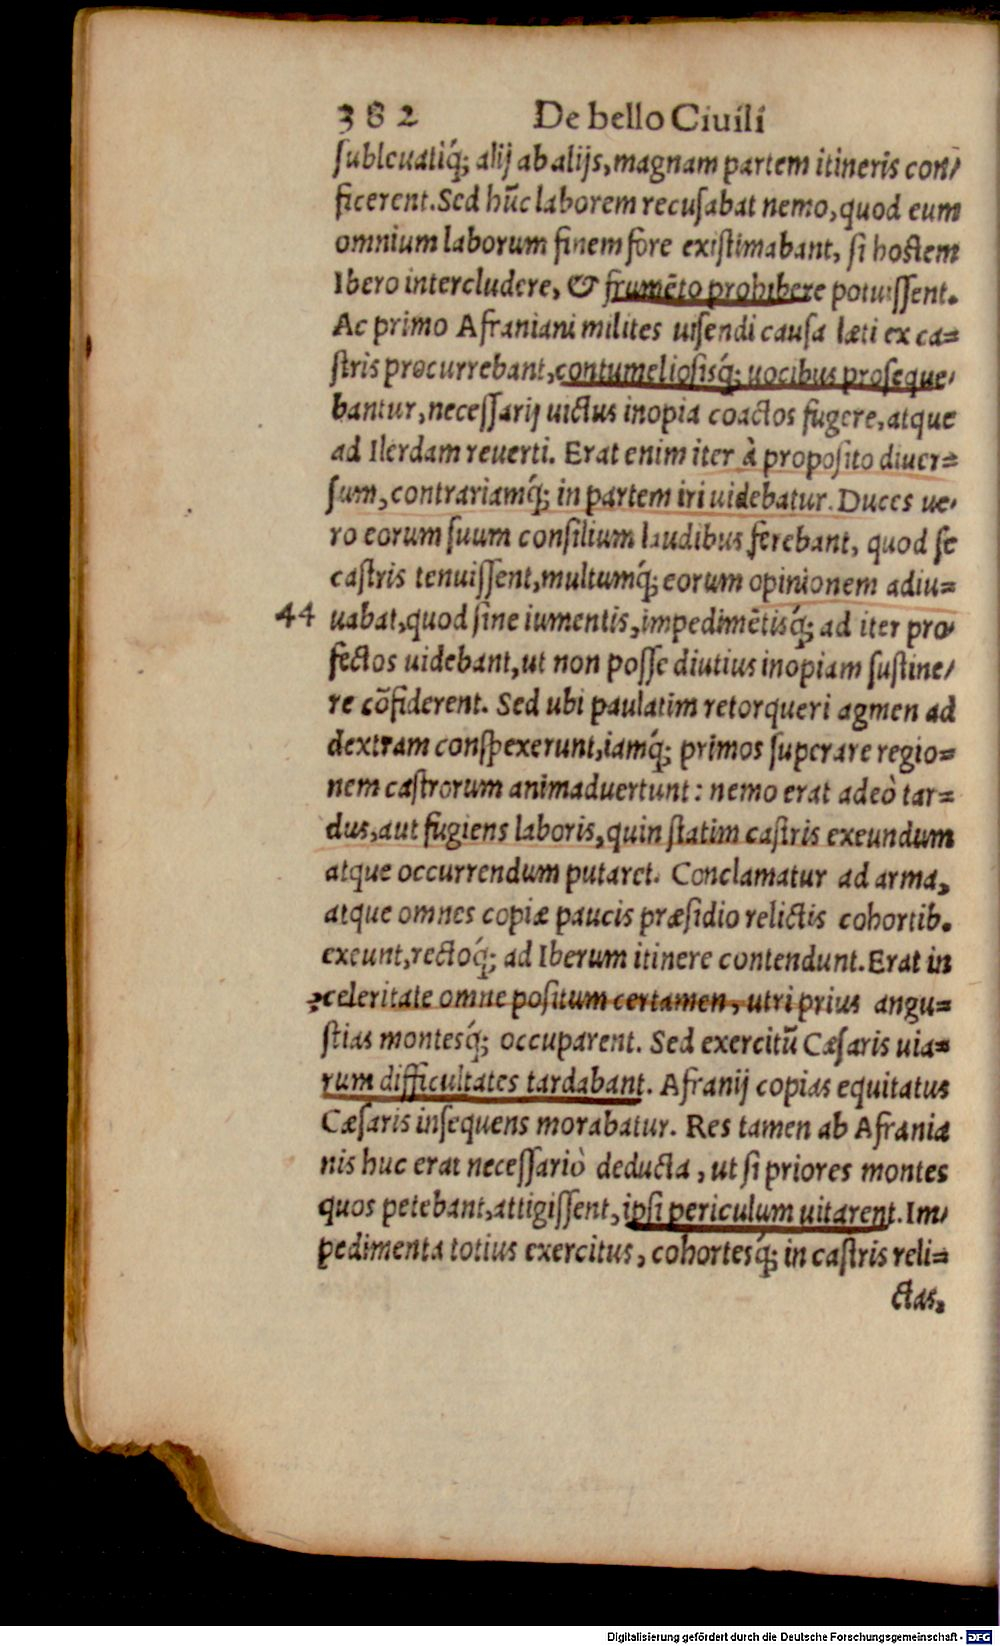 382 De bello Ciuili
ſubleuatiq́; alij ab alijs, magnam partem itineris con/
ficerent. Sed hũc laborem recuſabat nemo, quod eum
omnium laborum finem fore exiſtimabant, ſi hoſtem
Ibero intercludere, & frumẽto prohibere potuiſſent.
Ac primo Afraniani milites uiſendi cauſa læti ex ca=
ſtris procurrebant, contumelioſisq́; uocibus proſeque/
bantur, neceſſarij uictus inopia coactos fugere, atque
ad Ilerdam reuerti. Erat enim iter à propoſito diuer=
ſum, contrariamq́; in partem iri uidebatur. Duces ue/
ro eorum ſuum conſilium laudibus ferebant, quod ſe
caſtris tenuiſſent, multumq́; eorum opinionem adiu=
44 uabat, quod ſine iumentis, impedimẽtisq́; ad iter pro/
fectos uidebant, ut non poſſe diutius inopiam ſuſtine/
re cõfiderent. Sed ubi paulatim retorqueri agmen ad
dextram conſpexerunt, iamq́; primos ſuperare regio=
nem caſtrorum animaduertunt: nemo erat adeò tar=
dus, aut fugiens laboris, quin ſtatim caſtris exeundum
atque occurrendum putaret. Conclamatur ad arma,
atque omnes copiæ paucis præſidio relictis cohortib.
exeunt, rectoq́; ad Iberum itinere contendunt. Erat in
celeritate omne poſitum certamen, utri prius angu=
ſtias montesq́; occuparent. Sed exercitũ Cæſaris uia=
rum difficultates tardabant. Afranij copias equitatus
Cæſaris inſequens morabatur. Res tamen ab Afrania
nis huc erat neceſſariò deducta, ut ſi priores montes
quos petebant, attigiſſent, ipſi periculum uitarent. Im/
pedimenta totius exercitus, cohortesq́; in caſtris reli=
ctas,
Digitalisierung gefördert durch die Deutsche Forschungsgemeinschaft - DFG